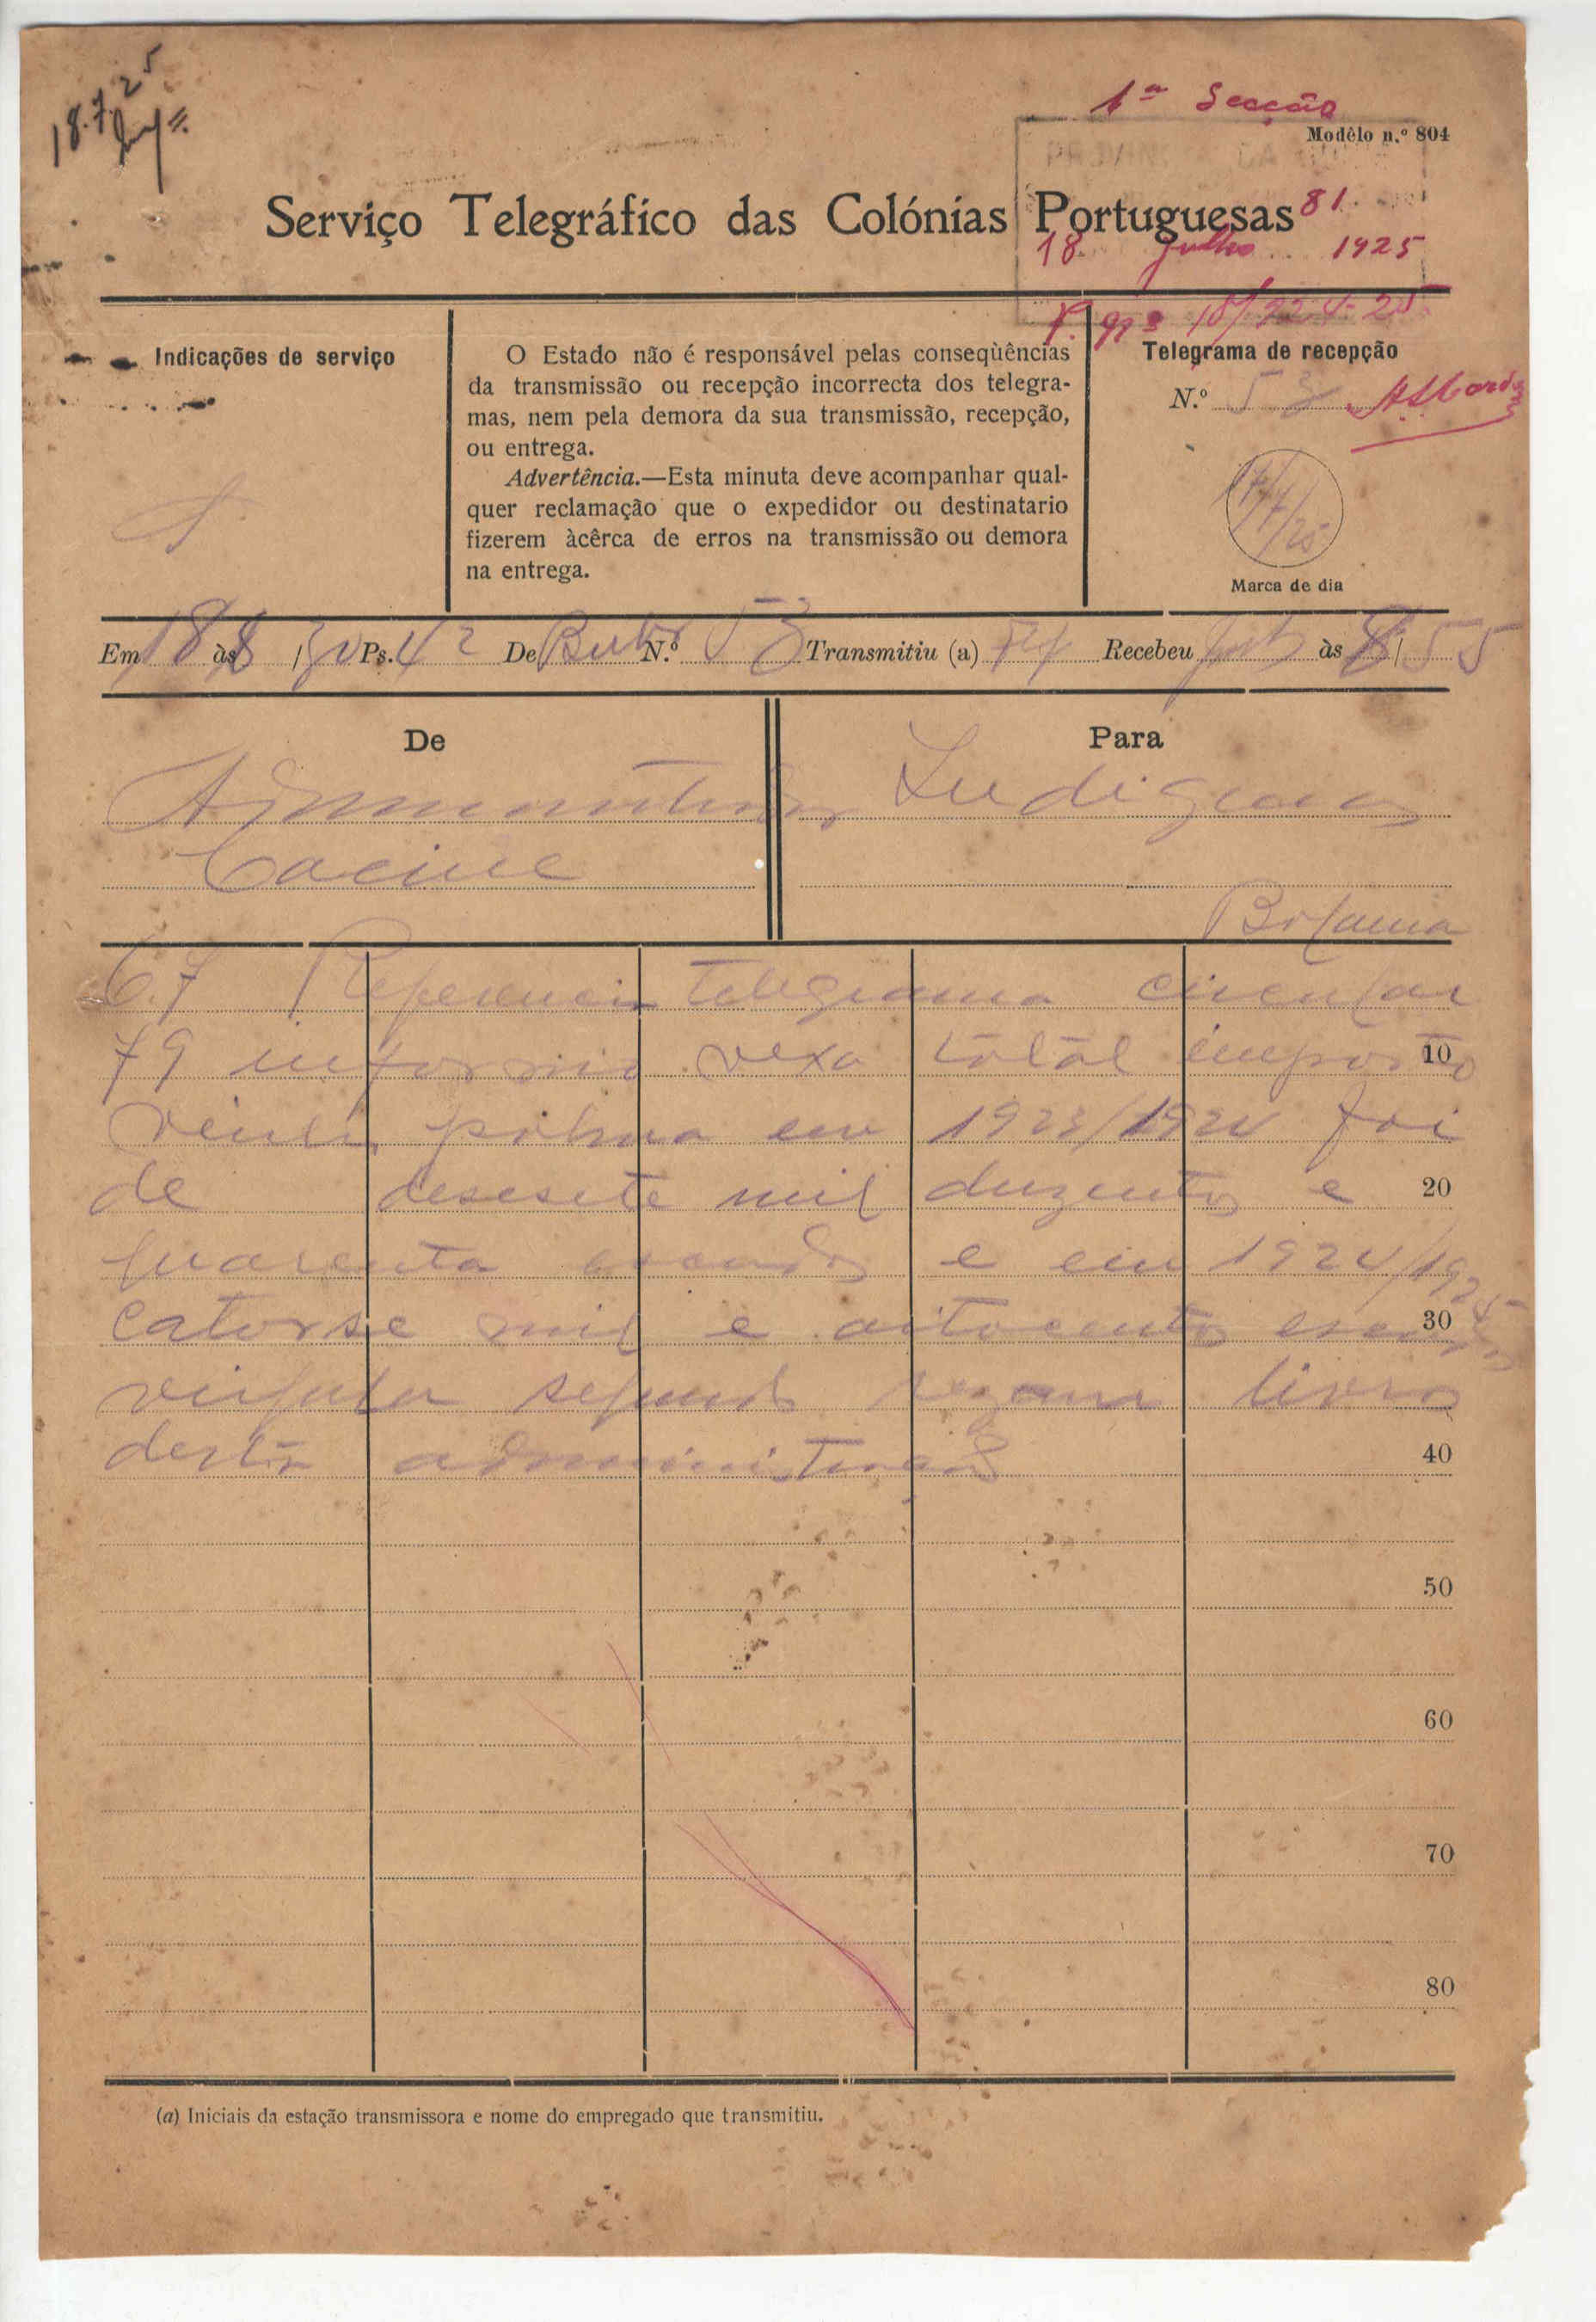 18.7.25
1ª Secção
Modêlo n.º 804
Serviço Telegráfico das Colónias Portuguesas
81
18 Julho 1925
Indicações de serviço
O Estado não é responsável pelas conseqùências
da transmissão ou recepção incorrecta dos telegra-
mas, nem pela demora da sua transmissão, recepção,
ou entrega.
Advertência.—Esta minuta deve acompanhar qual-
quer reclamação que o expedidor ou destinatario
fizerem àcêrca de erros na transmissão ou demora
na entrega.
Telegrama de recepção
N.º 53
17/7/25
Marca de dia
Em 18 às 8 / 30 Ps. 42 De N.º 53 Transmitiu (a) Recebeu às 8 / 55
De
Para
Administrador
Cacine
Indigenas
Bolama
67 Referencia telegrama circular
79 informo vexa total imposto 10
em 1923/1924 foi
de desesete mil duzentos e 20
quarenta escudos e em 1924/1925
catorse mil e oitocentos escudos 30
virgula segundo livros
desta administração 40
50
60
70
80
(a) Iniciais da estação transmissora e nome do empregado que transmitiu.